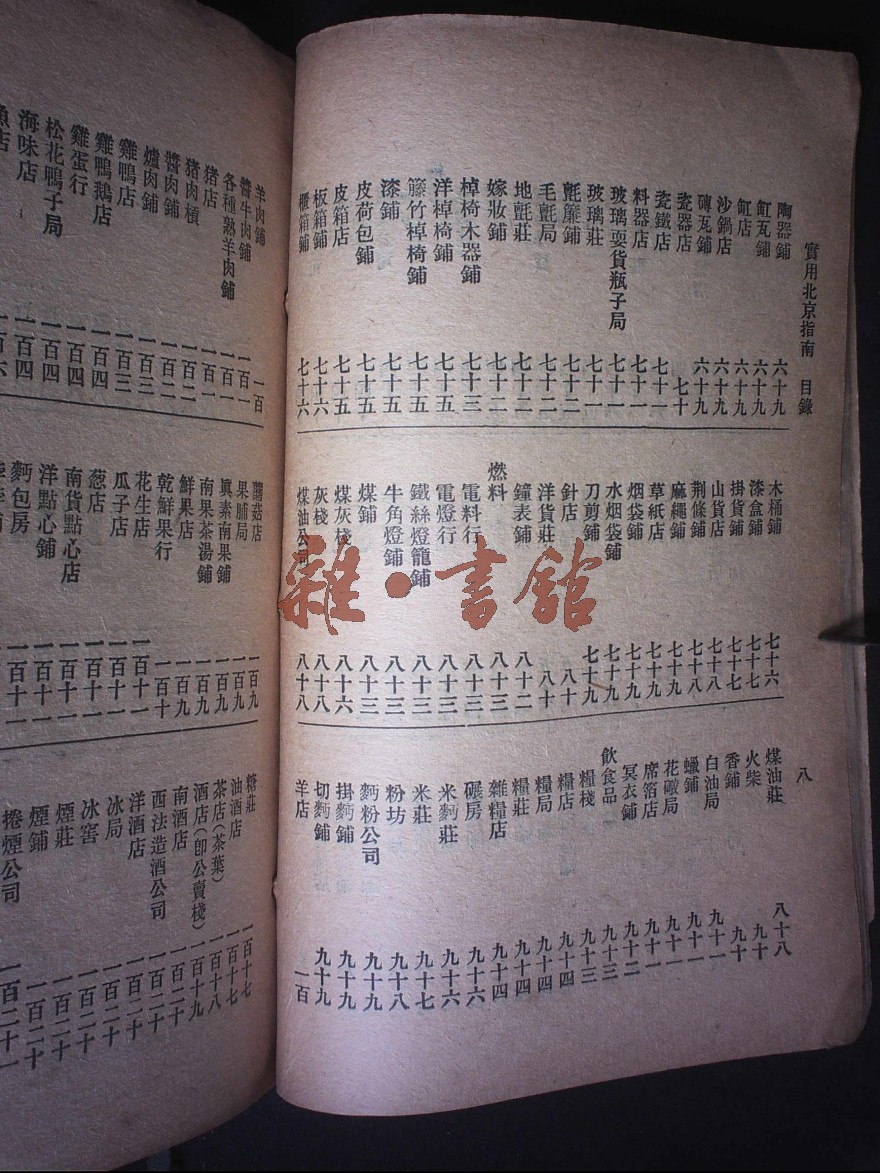 實用北京指南 目錄 八
陶器鋪 六十九
缸瓦鋪 六十九
缸店 六十九
沙鍋店 六十九
磚瓦鋪 六十九
瓷器店 七十
瓷鐵店 七十一
料器店 七十一
玻璃耍貨瓶子局 七十一
玻璃莊 七十一
氈簾鋪 七十二
毛氈局 七十二
地氈莊 七十二
嫁妝鋪 七十二
棹椅木器鋪 七十三
洋棹椅鋪
籐竹棹椅鋪 七十五
漆鋪 七十五
皮荷包鋪 七十五
皮箱店 七十五
板箱鋪 七十六
櫃箱鋪 七十六
木桶鋪 七十六
漆盒鋪 七十七
掛貨鋪 七十七
山貨店 七十八
荆條鋪 七十八
麻繩鋪 七十九
草紙店 七十九
烟袋鋪 七十九
水烟袋鋪 七十九
刀剪鋪 七十九
針店 八十
洋貨莊 八十
鐘表鋪 八十二
燃料 八十三
電料行 八十三
電燈行 八十三
鐵絲燈籠鋪 八十三
牛角燈鋪 八十三
煤鋪 八十三
煤灰棧 八十六
灰棧 八十八
煤油公司 八十八
煤油莊 八十八
火柴 九十
香鋪 九十
白油局 九十一
蠟鋪 九十一
花礮局 九十一
席箔店 九十一
冥衣鋪 九十二
飲食品 九十三
糧棧 九十三
糧店 九十四
糧局 九十四
糧莊 九十四
雜糧店 九十四
碾房 九十六
米麪莊 九十六
米莊 九十七
粉坊 九十八
麪粉公司 九十九
掛麪鋪 九十九
切麪鋪 九十九
羊店 一百
羊肉鋪 一百
醬牛肉鋪 一百一
各種熟羊肉鋪 一百一
猪店 一百一
猪肉槓 一百二
醬肉鋪 一百二
爐肉鋪 一百三
雞鴨店 一百三
雞鴨鵝店 一百四
雞蛋行 一百四
松花鴨子局 一百四
海味店 一百四
魚店 一百六
蘑菇店 一百九
果脯局 一百九
眞素南果鋪 一百九
南果茶湯鋪 一百九
鮮果店 一百九
乾鮮果行 一百十
花生店 一百十一
瓜子店 一百十一
葱店 一百十一
南貨點心店 一百十一
洋點心鋪 一百十一
麪包房 一百十一
糖莊 一百十七
油酒店 一百十七
茶店(茶葉) 一百十八
酒店(卽公賣棧) 一百十九
南酒店 一百二十
西法造酒公司 一百二十
洋酒店 一百二十
冰局 一百二十
冰窖 一百二十
煙莊 一百二十
煙鋪 一百二十
捲煙公司 一百二十一
雜·書館